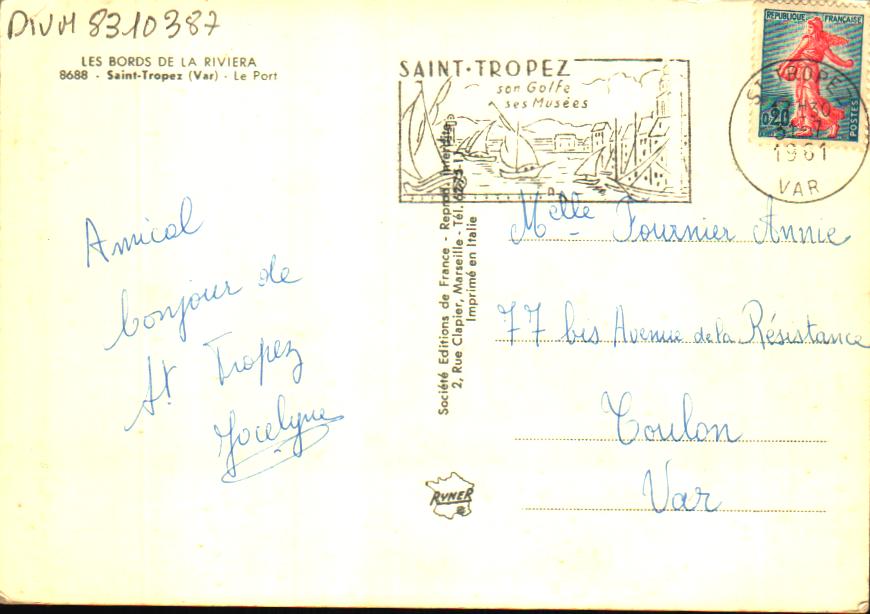 DIVM 8310387
LES BORDS DE LA RIVIERA
8688 - Saint-Tropez (Var) - Le Port
SAINT-TROPEZ
son Golfe
ses Musées
REPUBLIQUE FRANÇAISE
0,20
POSTES
ST TROPEZ
1961
VAR
Amical
bonjour de
St Tropez
Jocelyne
Société Editions de France - Reprod. Interdite
2, Rue Clapier, Marseille - Tél.
Imprimé en Italie
RYNER
Melle Fournier Annie
77 bis Avenue de la Résistance
Toulon
Var